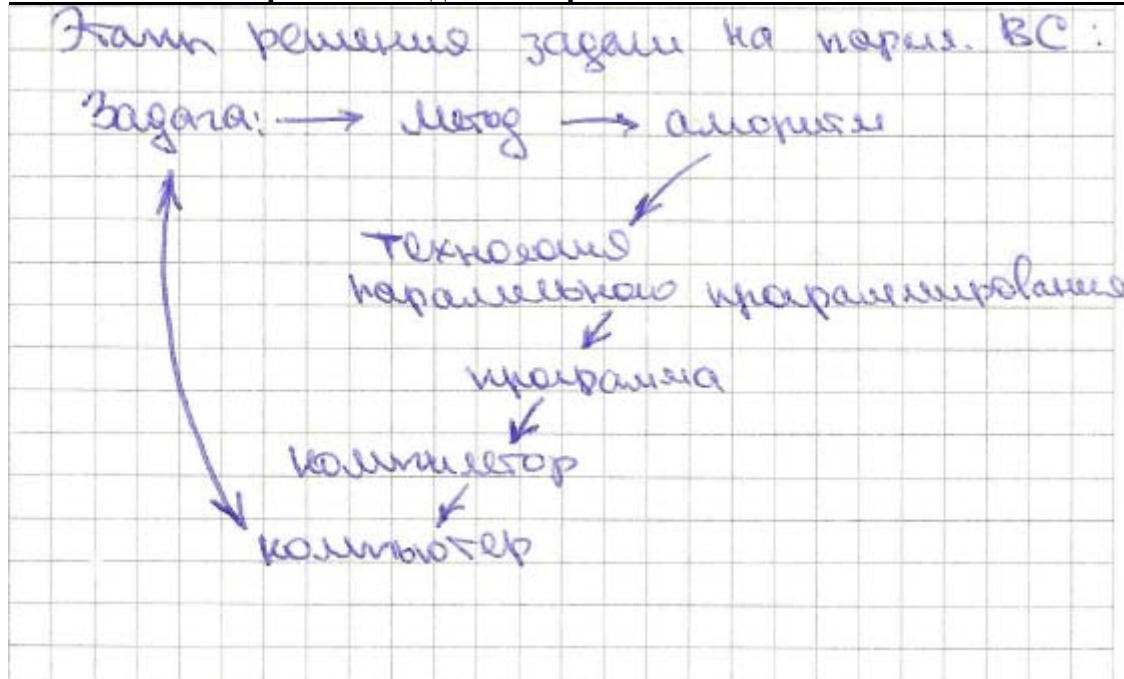 Этапы решения задачи на паралл. ВС:
Задача: → метод → алгоритм
технология
параллельного программирования
программа
компилятор
компьютер